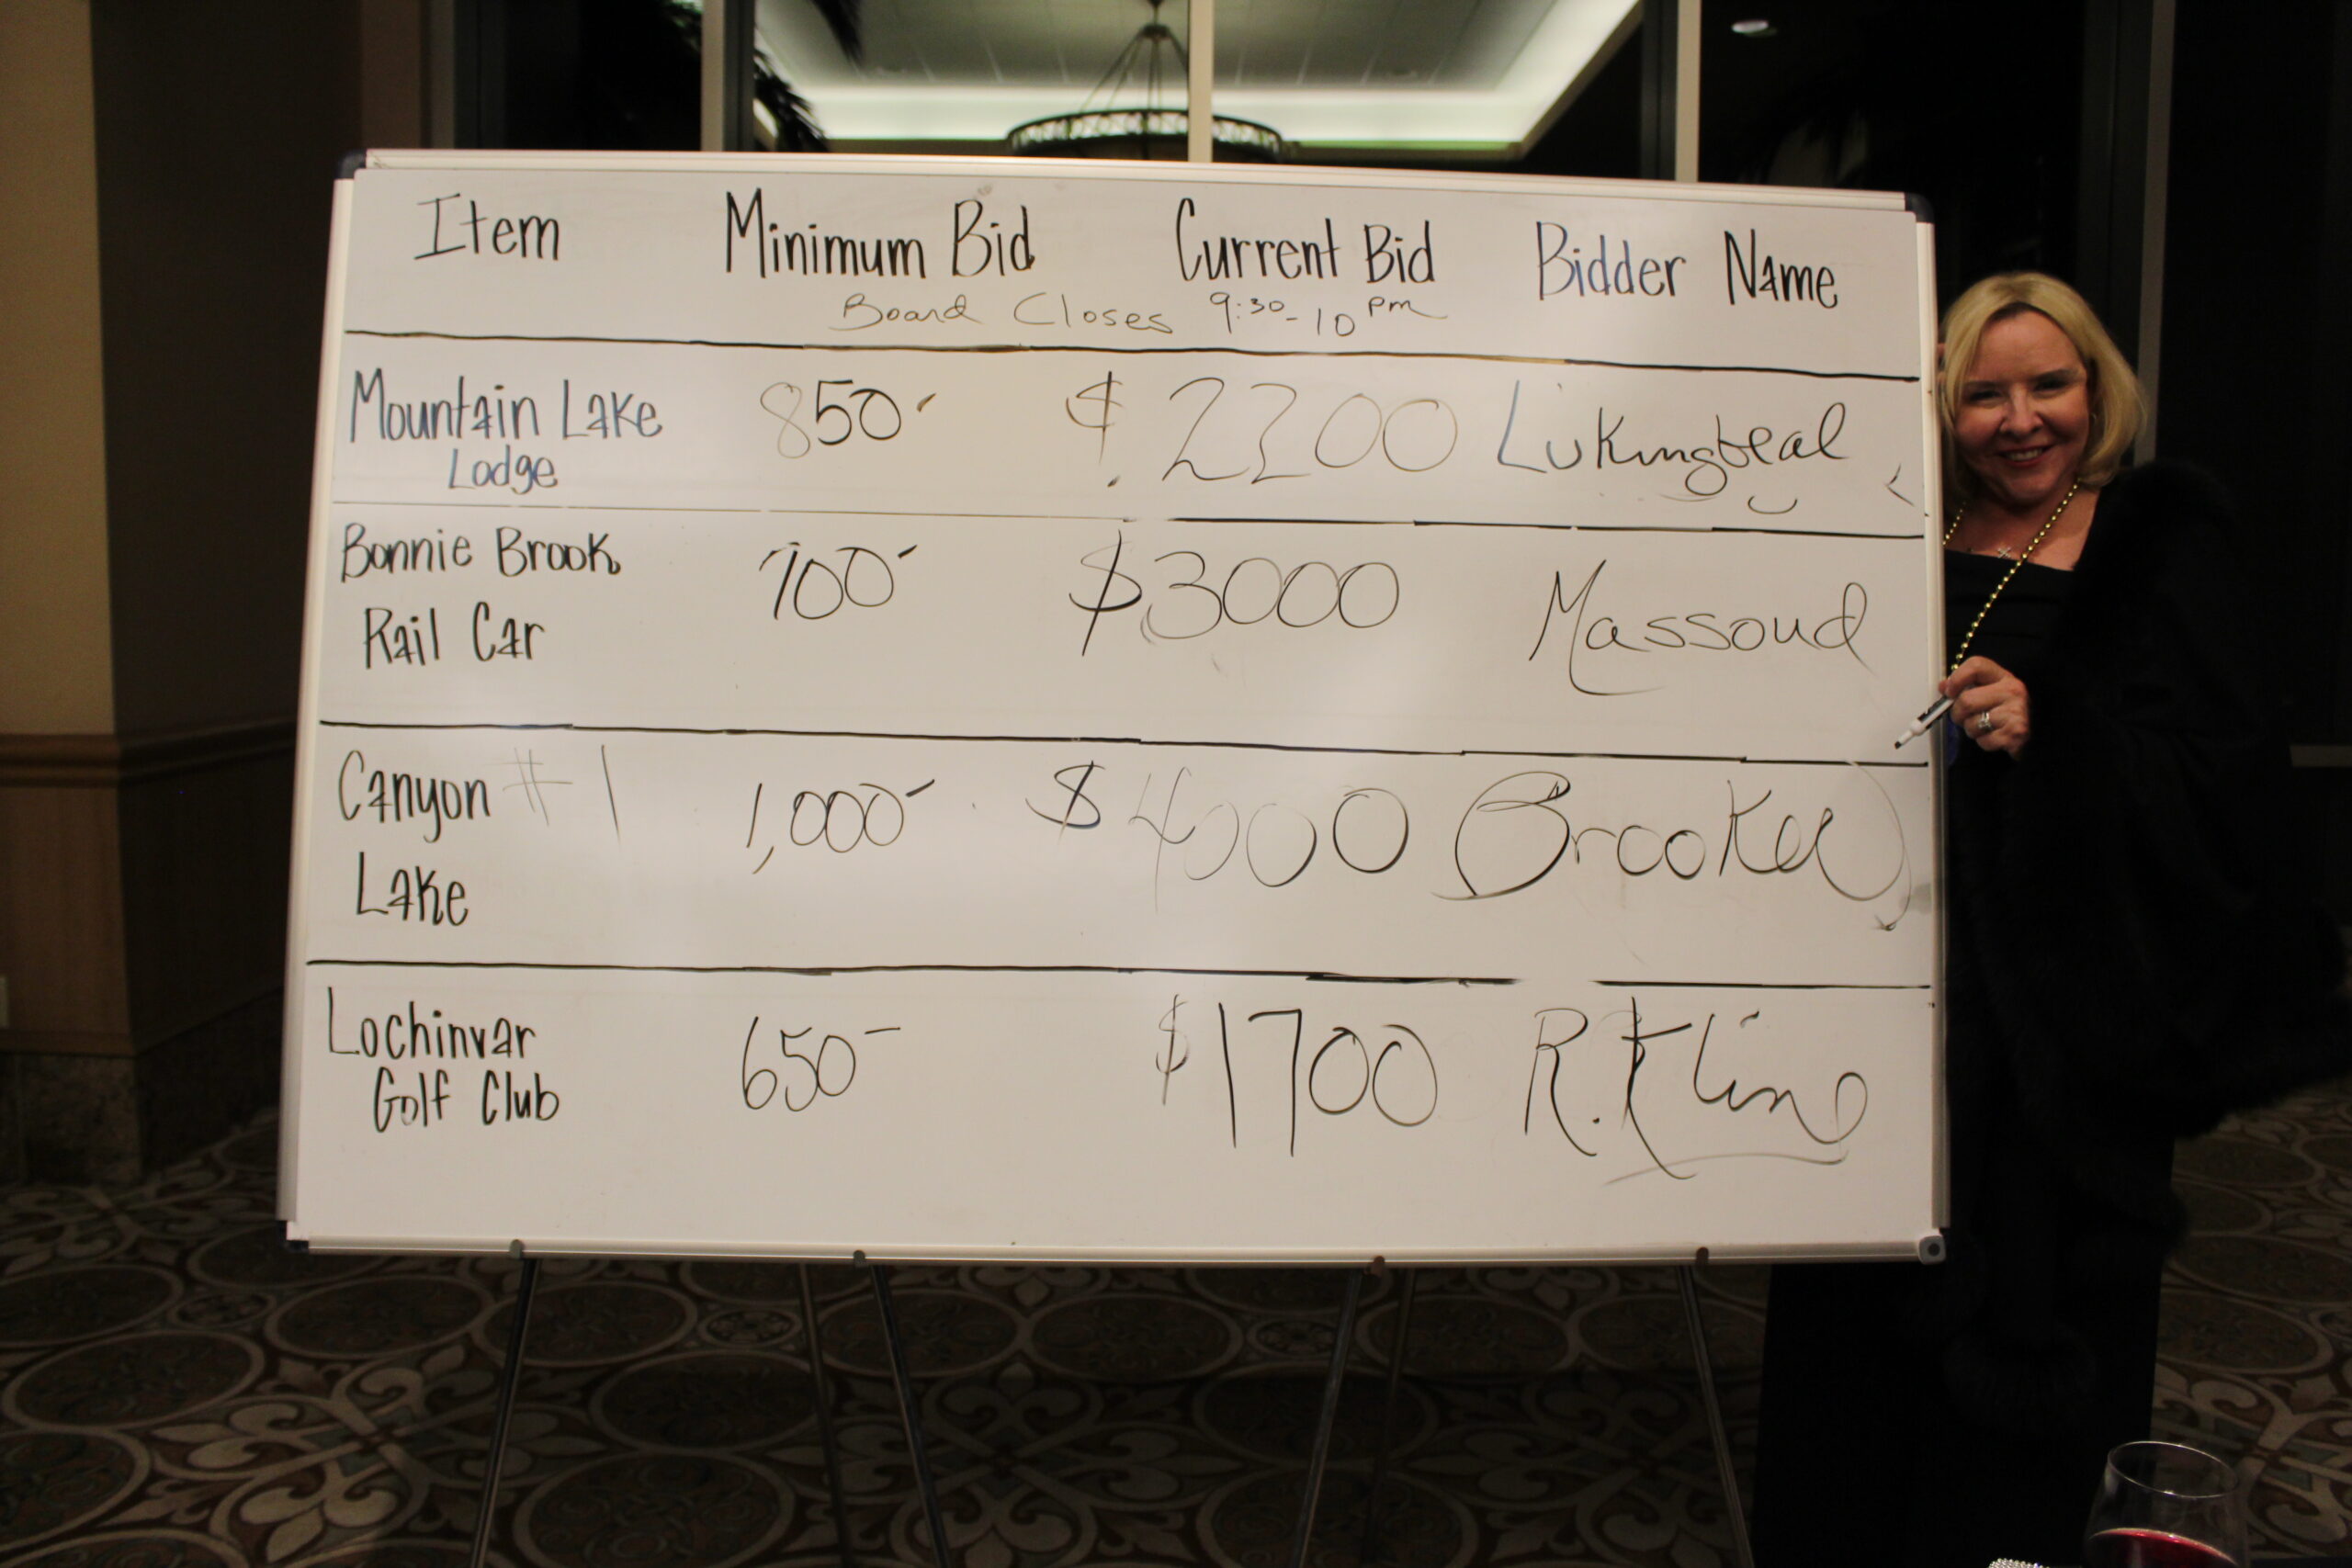 Item Minimum Bid Current Bid Bidder Name
Board Closes 9:30-10 pm
Mountain Lake 850- $ 2200
Lodge
Bonnie Brook 700- $3000 Massoud
Rail Car
Canyon #1 1,000- $4000
Lake
Lochinvar 650- $1700 R. Kline
Golf Club